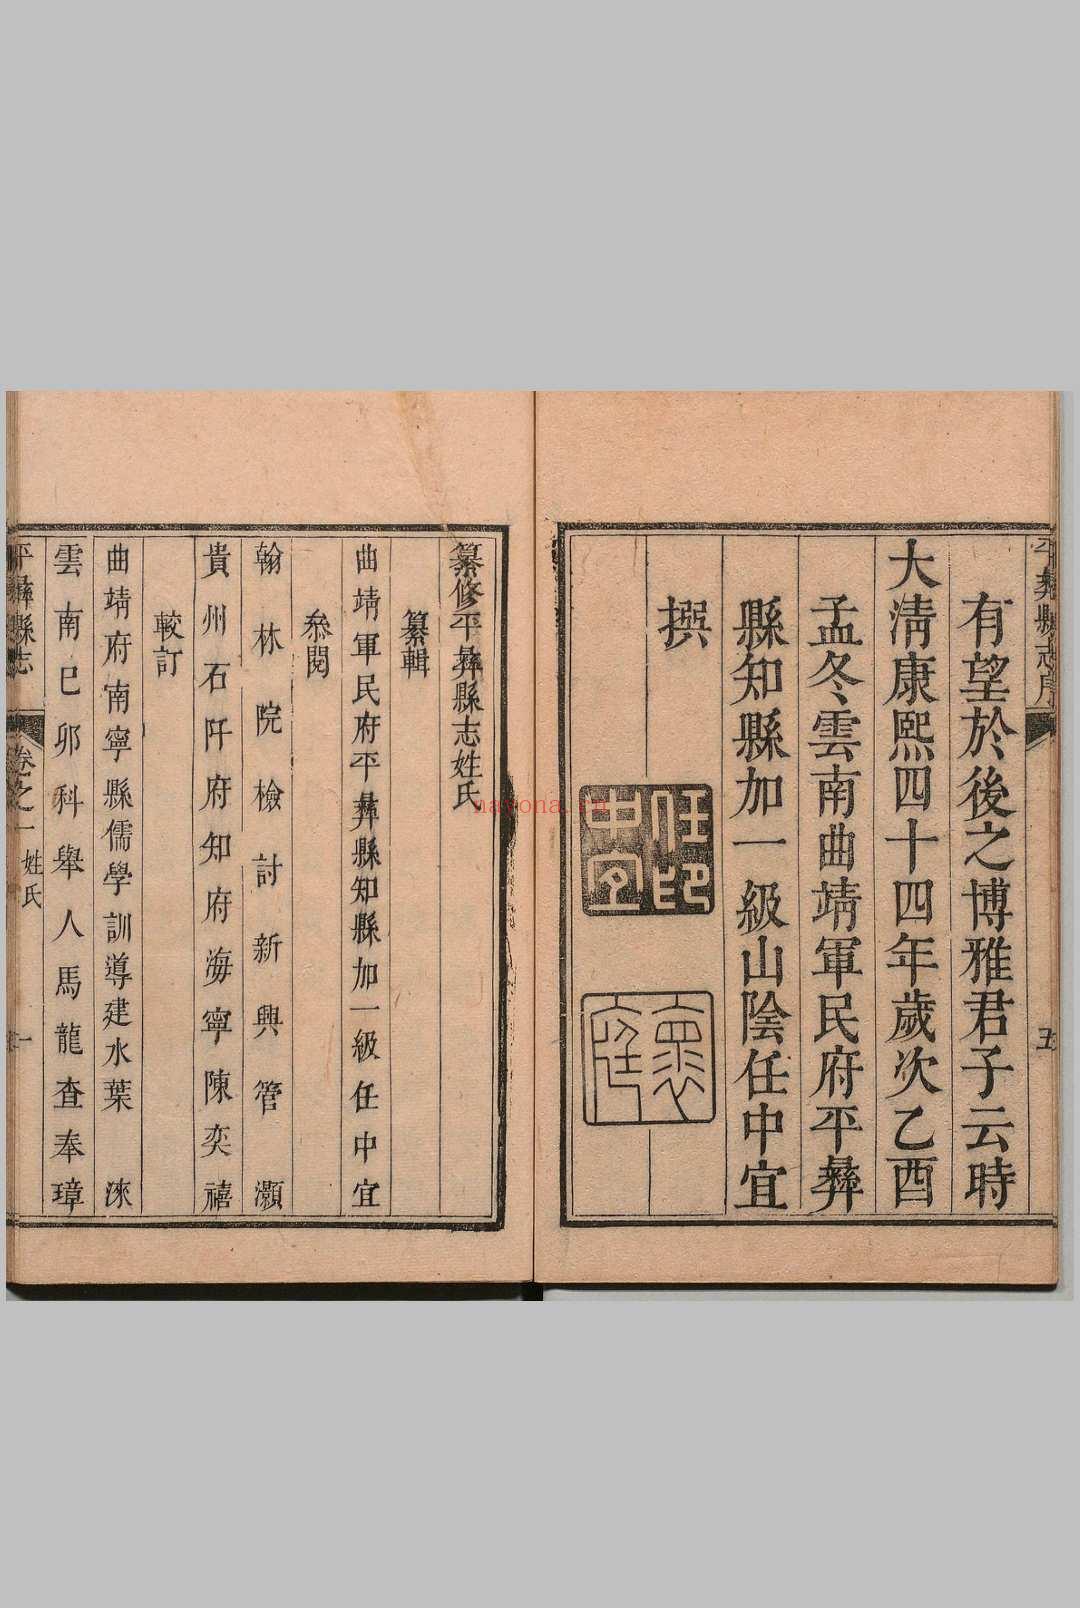 平彝縣志序
五
有望於後之博雅君子云時
大清康熙四十四年歲次乙酉
孟冬雲南曲靖軍民府平彝
縣知縣加一級山陰任中宜
撰
任印中宜
纂修平彝縣志姓氏
纂輯
曲靖軍民府平彝縣知縣加一級任中宜
叅閱
翰林院檢討新興管灝
貴州石阡府知府海寧陳奕禧
較訂
曲靖府南寧縣儒學訓導建水葉淶
雲南巳卯科舉人馬龍查奉璋
平彝縣志
卷之一
姓氏
一
nayona.cn